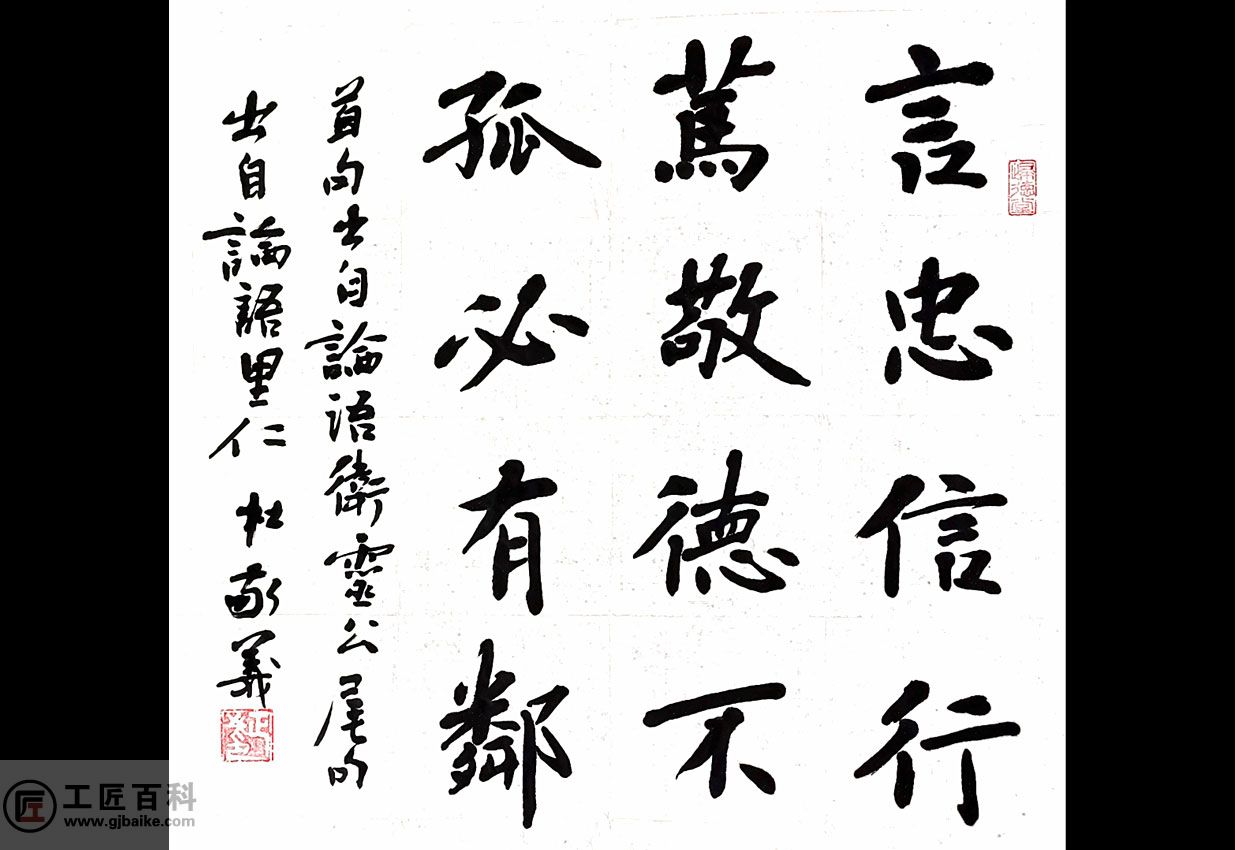 言忠信行
篤敬德不
孤必有鄰
首句出自論语衛靈公尾句
出自論語里仁 杜 義
匠
工匠百科
www.gjbaike.com